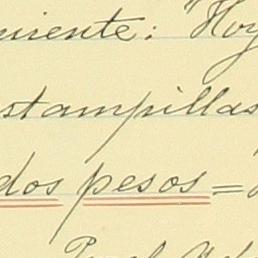 niente: "Hoy
stampillas
dos pesos =